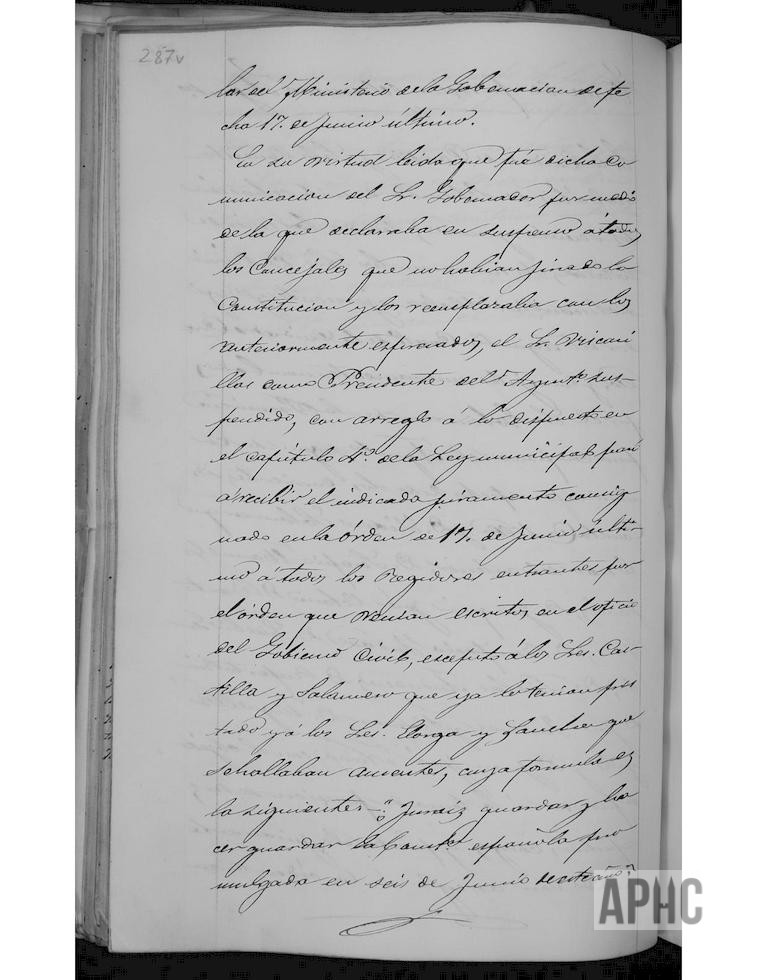 287v
lar del Ministerio dela Gobernacion defe
cha 17. de Junio último.
En su virtud leida que fué dicha co
municacion del Sr. Gobernador por medio
dela que declaraba en suspenso á todos
los Concejales que no habian jurado la
Constitucion y los reemplazaba con los
anteriormente espresados, el Sr.
llas como Presidente del Ayunto. sus-
pendido, con arreglo á lo dispuesto en
el capítulo 4º. dela Ley municipal pasó
á recibir el indicado juramento consig
nado en la órden de 17. de Junio últi-
mo á todos los Regidores entrantes por
el órden que venian escritos en el oficio
del Gobierno Civil, escepto á los Sres. Cas-
tilla y Salamero que ya lo tenian pres
tado y á los Sres. Elorza y Sanchez que
se hallaban ausentes, cuya formula es
la siguiente:-"¿ Jurais guardar y ha
cer guardar la Constn. española pro
mulgada en seis de Junio de este año?
APHC